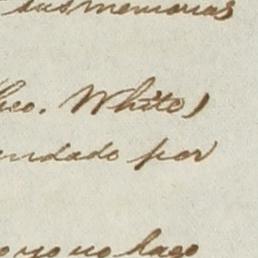 sus memorias
Geo. White)
endado por
yo no hago